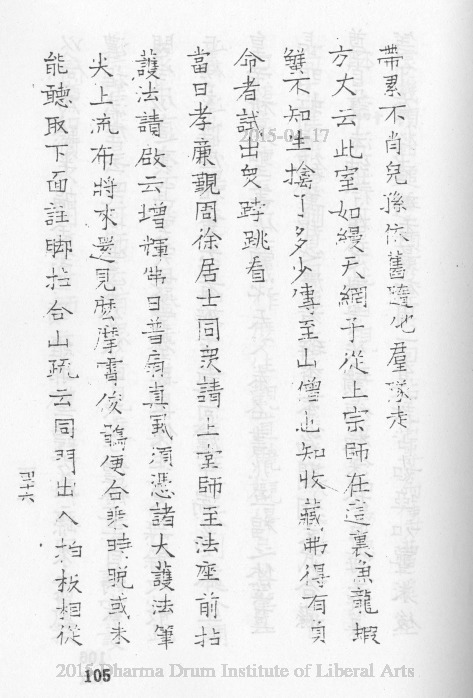 帶累不肖兒孫依舊隨他群隊走
方丈云此室如縵天網子從上宗師在這裏魚龍蝦
蟹不知生擒了多少傳至山僧也知收藏弗得有負
命者試出眾跨跳看
當日孝廉觀周徐居士同眾請上堂師至法座前拈
護法請啟云增輝佛日普扇真風須憑諸大護法筆
尖上流布將來還見麼摩霄俊鶻便合乘時脫或未
能聽取下面註腳拈合山疏云同門出入拍板相從
四十六
105
2015-04-17
2015 Dharma Drum Institute of Liberal Arts